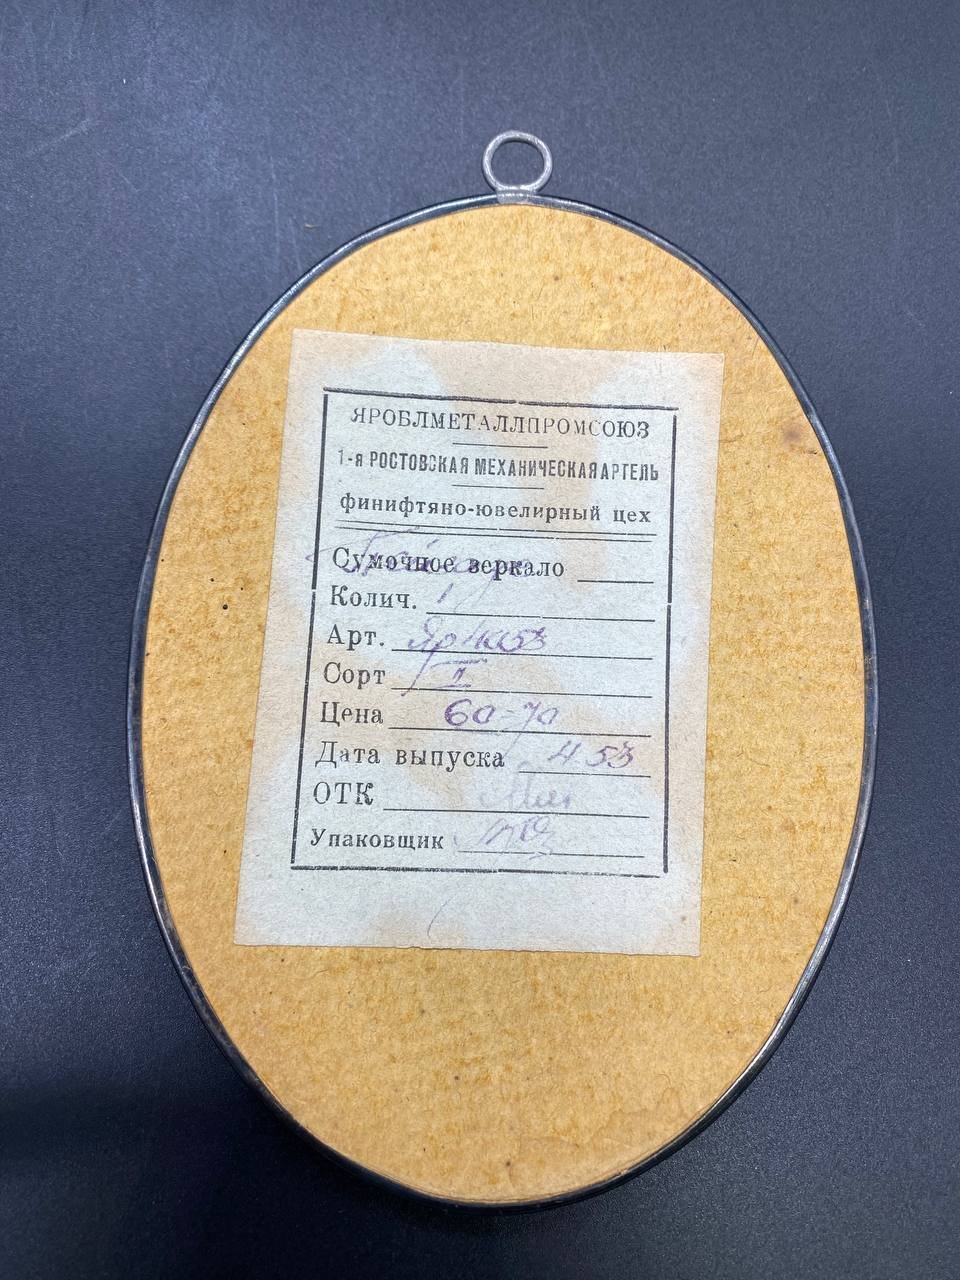 ЯРОБЛМЕТАЛЛПРОМСОЮЗ
1-я РОСТОВСКАЯ МЕХАНИЧЕСКАЯ АРТЕЛЬ
финифтяно-ювелирный цех
Сумочное зеркало
Колич. 1
Арт.
Сорт I
Цена 60-70
Дата выпуска 4.53
ОТК
Упаковщик